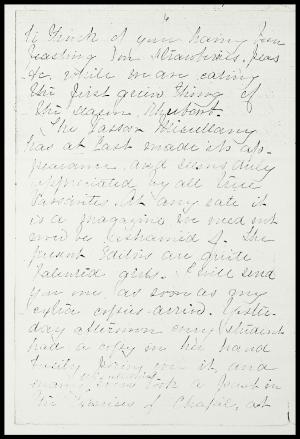 6
to think of you having been
feasting on strawberries, peas
&c. while we are eating
the first green thing of
the season, rhubarb.
The Vassar Miscellany
has at last made its ap-
pearance and seems duly
appreciated by all true
Vassarites. At any rate it
is a magazine we need not
ever be ashamed of. The
present Editors are quite
talented girls. I will send
you one, as soon as any
extra copies arrive. Yester-
day afternoon every student
had a copy in her hand
busily poring over it, and
many even took a peep in
the Exercises of Chapel, at